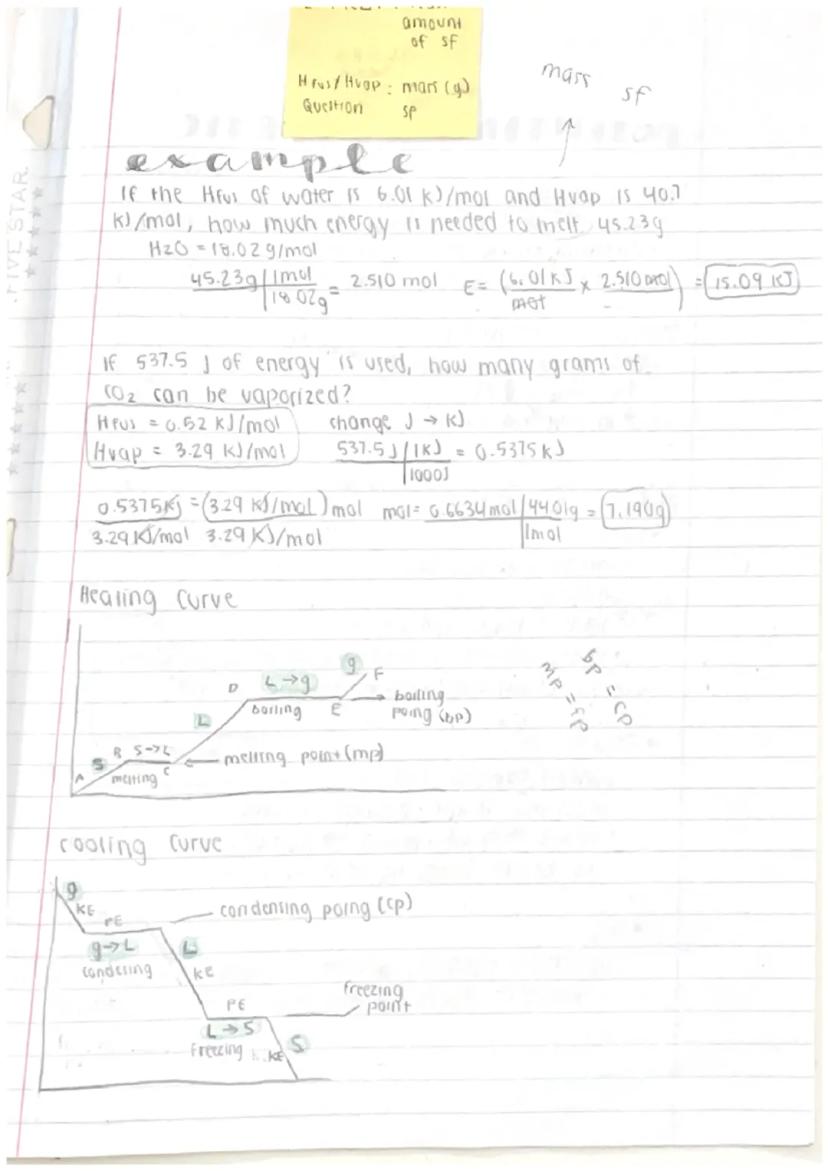 amount
of sf
Hfus/Hvap: mass (g)
Question sf
mass sf
FIVE STAR
example
If the Hfus of water is 6.01 kJ/mol and Hvap is 40.7
kJ/mol, how much energy is needed to melt 45.23g
H2O = 18.02 g/mol
45.23g | 1mol = 2.510 mol E = (6.01 kJ x 2.510 mol) = 15.09 KJ
18.02g mol
If 537.5 J of energy is used, how many grams of
CO2 can be vaporized?
Hfus = 0.52 kJ/mol change J → KJ
Hvap = 3.29 kJ/mol 537.5 J | 1KJ = 0.5375 KJ
1000J
0.5375KJ = (3.29 KJ/mol) mol mol = 0.6634mol | 44.01g = 7.190g
3.29 KJ/mol 3.29 KJ/mol 1mol
Heating Curve
g
L → g F
D
boiling E boiling
poing (bp)
bp = cp
mp = fp
L
B S→L melting point (mp)
S
A melting C
cooling curve
g
KE PE condensing poing (cp)
g→L L
condesing KE
PE freezing
point
L → S
freezing KE S